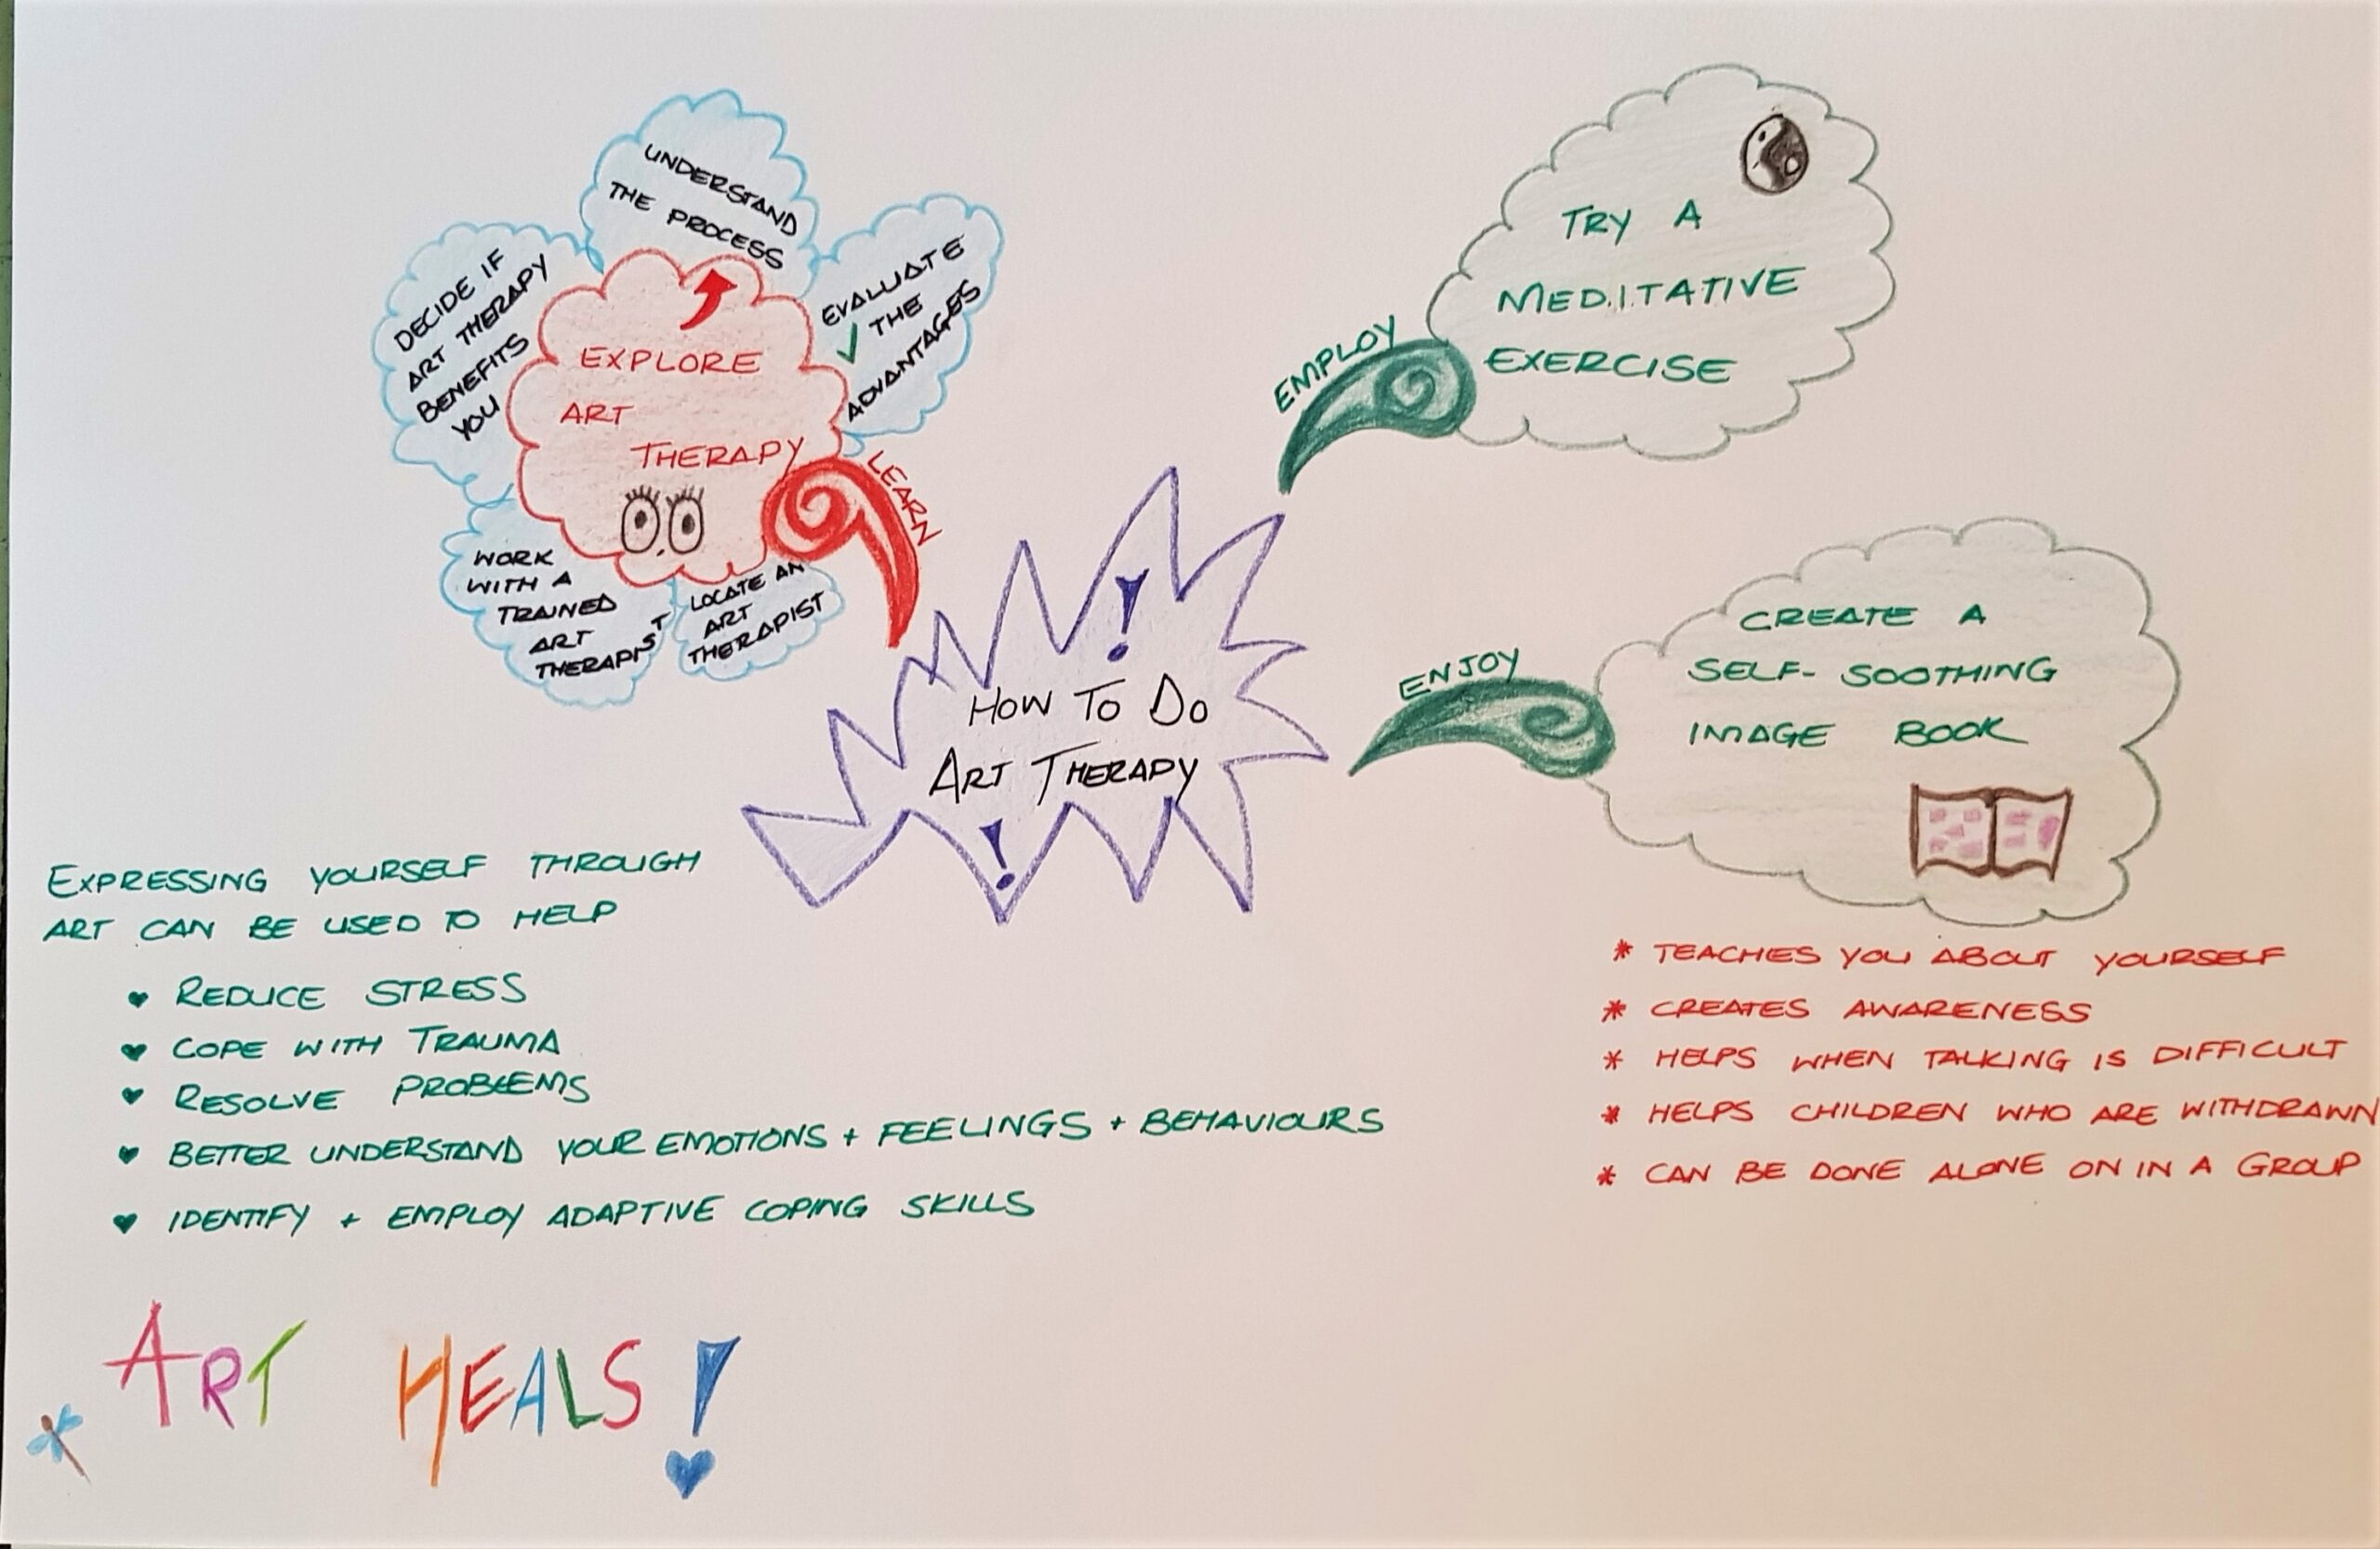 UNDERSTAND
THE PROCESS
EVALUATE
THE
ADVANTAGES
DECIDE IF
ART THERAPY
BENEFITS
YOU
EXPLORE
ART
THERAPY
LEARN
WORK
WITH A
TRAINED
ART
THERAPIST
LOCATE AN
ART
THERAPIST
EMPLOY
TRY A
MEDITATIVE
EXERCISE
!
HOW TO DO
ART THERAPY
!
ENJOY
CREATE A
SELF-SOOTHING
IMAGE BOOK
EXPRESSING YOURSELF THROUGH
ART CAN BE USED TO HELP
♥ REDUCE STRESS
♥ COPE WITH TRAUMA
♥ RESOLVE PROBLEMS
♥ BETTER UNDERSTAND YOUR EMOTIONS + FEELINGS + BEHAVIOURS
♥ IDENTIFY + EMPLOY ADAPTIVE COPING SKILLS
* TEACHES YOU ABOUT YOURSELF
* CREATES AWARENESS
* HELPS WHEN TALKING IS DIFFICULT
* HELPS CHILDREN WHO ARE WITHDRAWN
* CAN BE DONE ALONE ON IN A GROUP
ART HEALS!